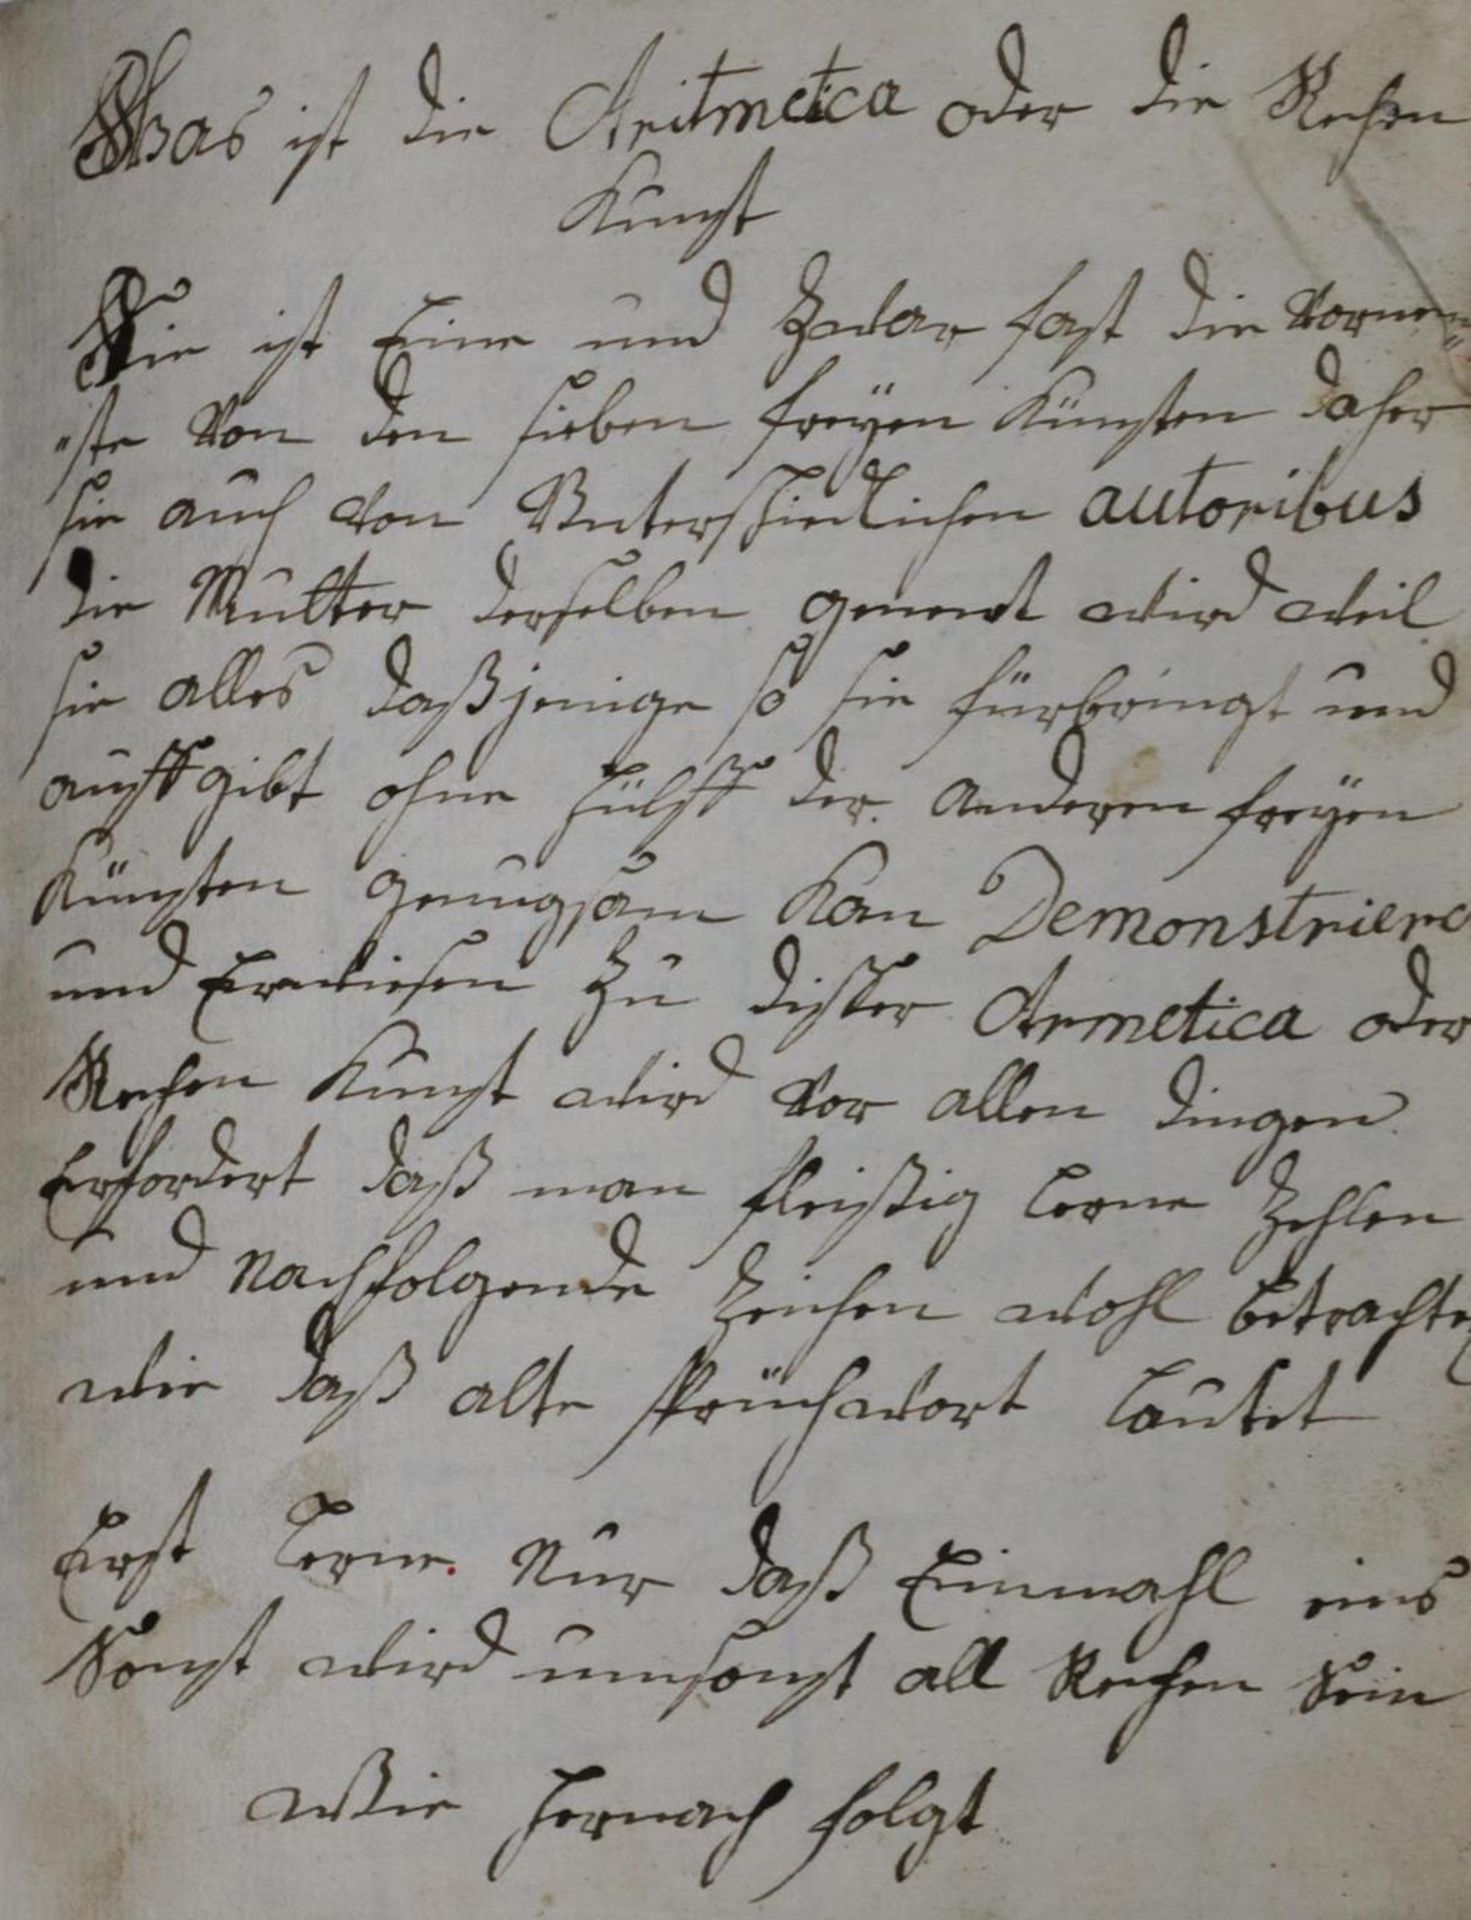 Was ist die Aritmetica oder die Rechen
Kunst
Sie ist Eine und Zwar fast die Vornem„
„ste Von den sieben freÿen Künsten daher
sie auch von Unterschiedlichen autoribus
die Mutter derselben genent wird weil
sie alles daßjenige so sie fürbringt und
auffgibt ohne hülff der anderen freÿen
Künsten genugsam Kan Demonstriern
und Erwiesen Zu disser Armetica oder
Rechen Kunst wird Vor allen dingen
Erfordert daß man fleißig lerne Zehlen
und Nachfolgende Zeichen wohl betrachten
wie daß alte sprüchwort lautet
Erst lerne Nur daß Einmahl eins
Sonst wird umsonst all Rechen Sein
wie hernach folgt